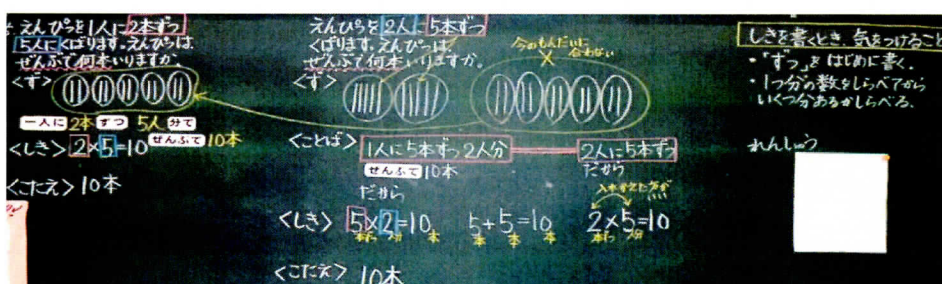 えんぴつを1人に2本ずつ
5人にくばります。えんぴつは、
ぜんぶで何本いりますか。
<ず>
一人に2本ずつ 5人分で
ぜんぶで10本
<しき>2×5=10
<こたえ>10本
えんぴつを2人に5本ずつ
くばります。えんぴつは、
ぜんぶで何本いりますか。
<ず>
今のもんだいに
合わない
<ことば>
1人に5本ずつ2人分
2人に5本ずつ
ぜんぶで10本
だから
だから
入れかえた方が
<しき>5×2=10
本ずつ 人分 本
5+5=10
本 本 本
2×5=10
本ずつ 人分
<こたえ>10本
しきを書くとき、気をつけること
・「ずつ」をはじめに書く。
・1つ分の数をしらべてから
いくつ分あるかしらべる。
れんしゅう